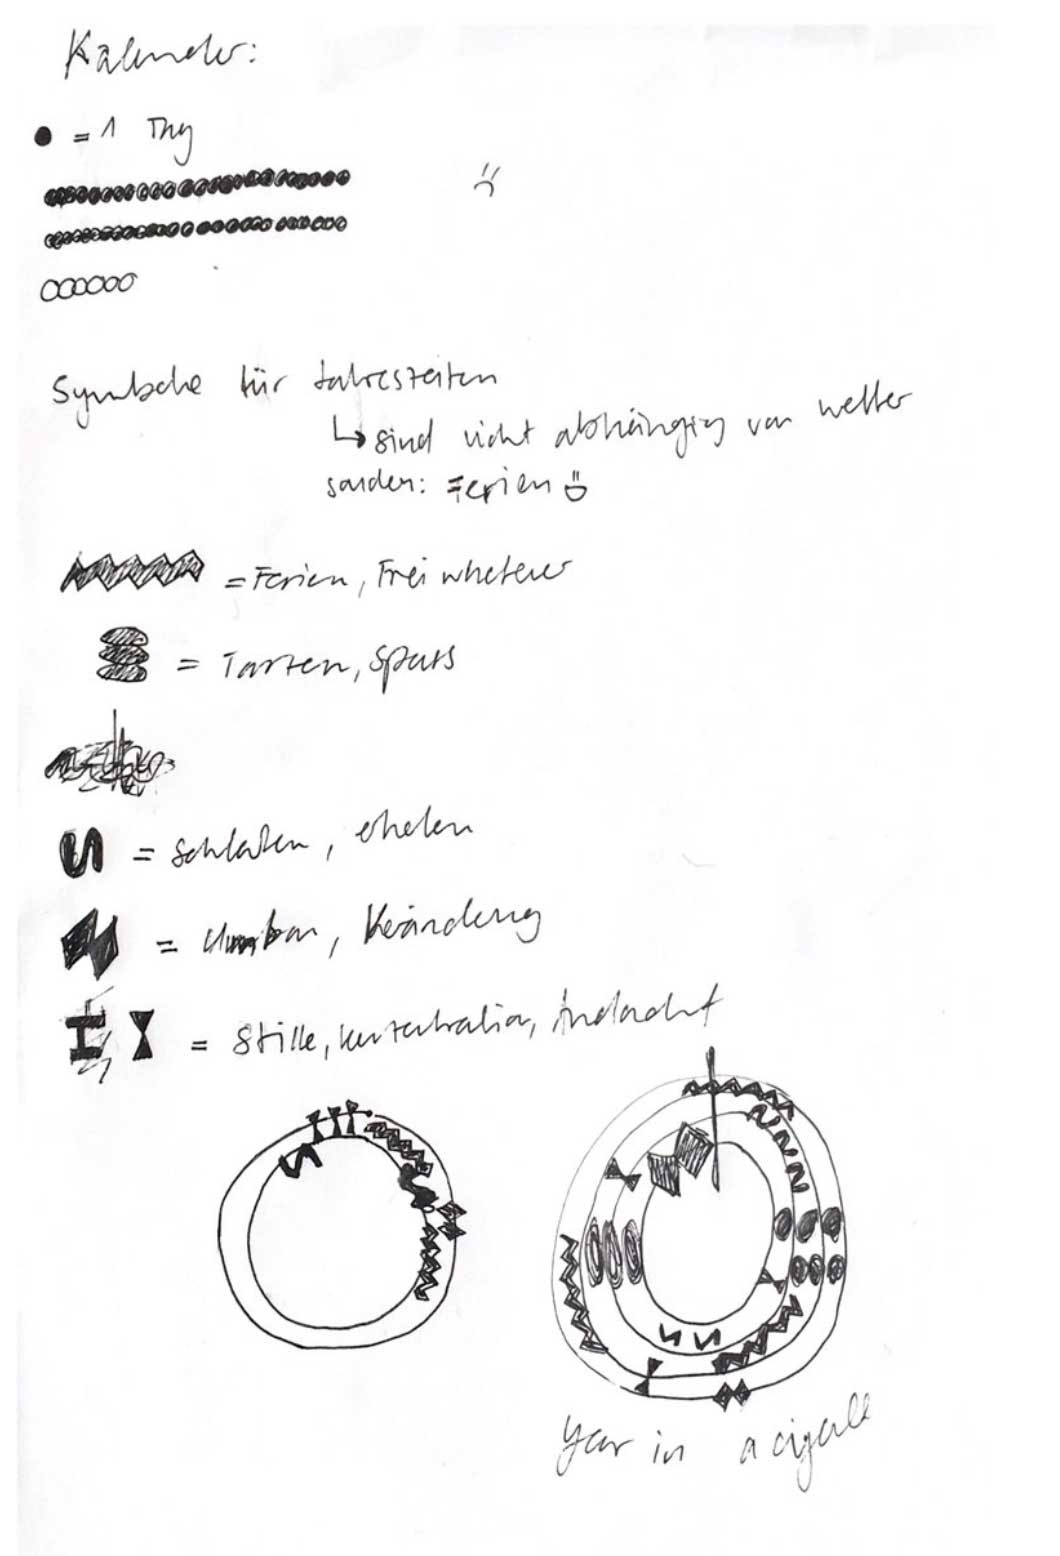 Kalender:
= 1 Tag
Symbole für Jahreszeiten
↳ sind nicht abhängig von wetter
sondern: Ferien
= Ferien, Frei
= Tanzen, Spass
= Schlafen, erholen
= Umbau, Veränderung
= Stille, Konzentration, Andacht
Year in a